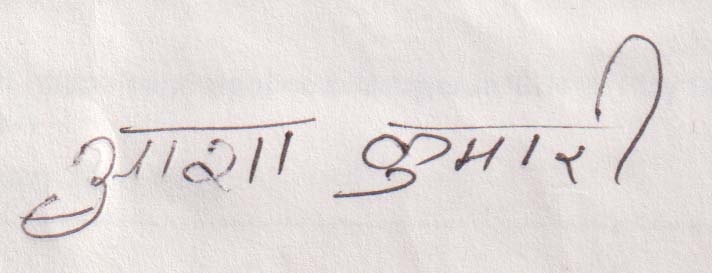 आशा कुमारी